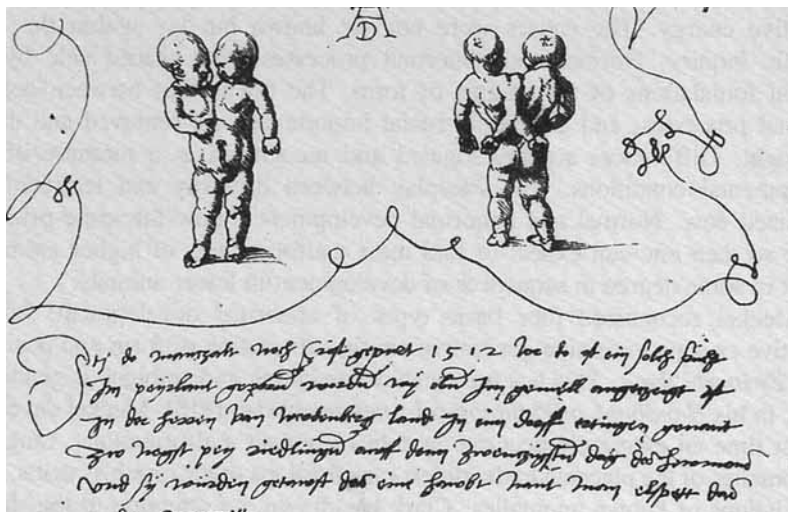 AD
do man zalt noch Crist gepurt 1512 Jor do ist ein solch frucht
Im peyrlant geporn wordn wy obn Im gemell angezeigt ist
In der herren van werdenberg lande In eim dorff ertingen genant
zw negst pey riedlingen awff denn zwenzigsten dag des hewmond
und sy wurden getawft das eine hawbt nant man elspett das